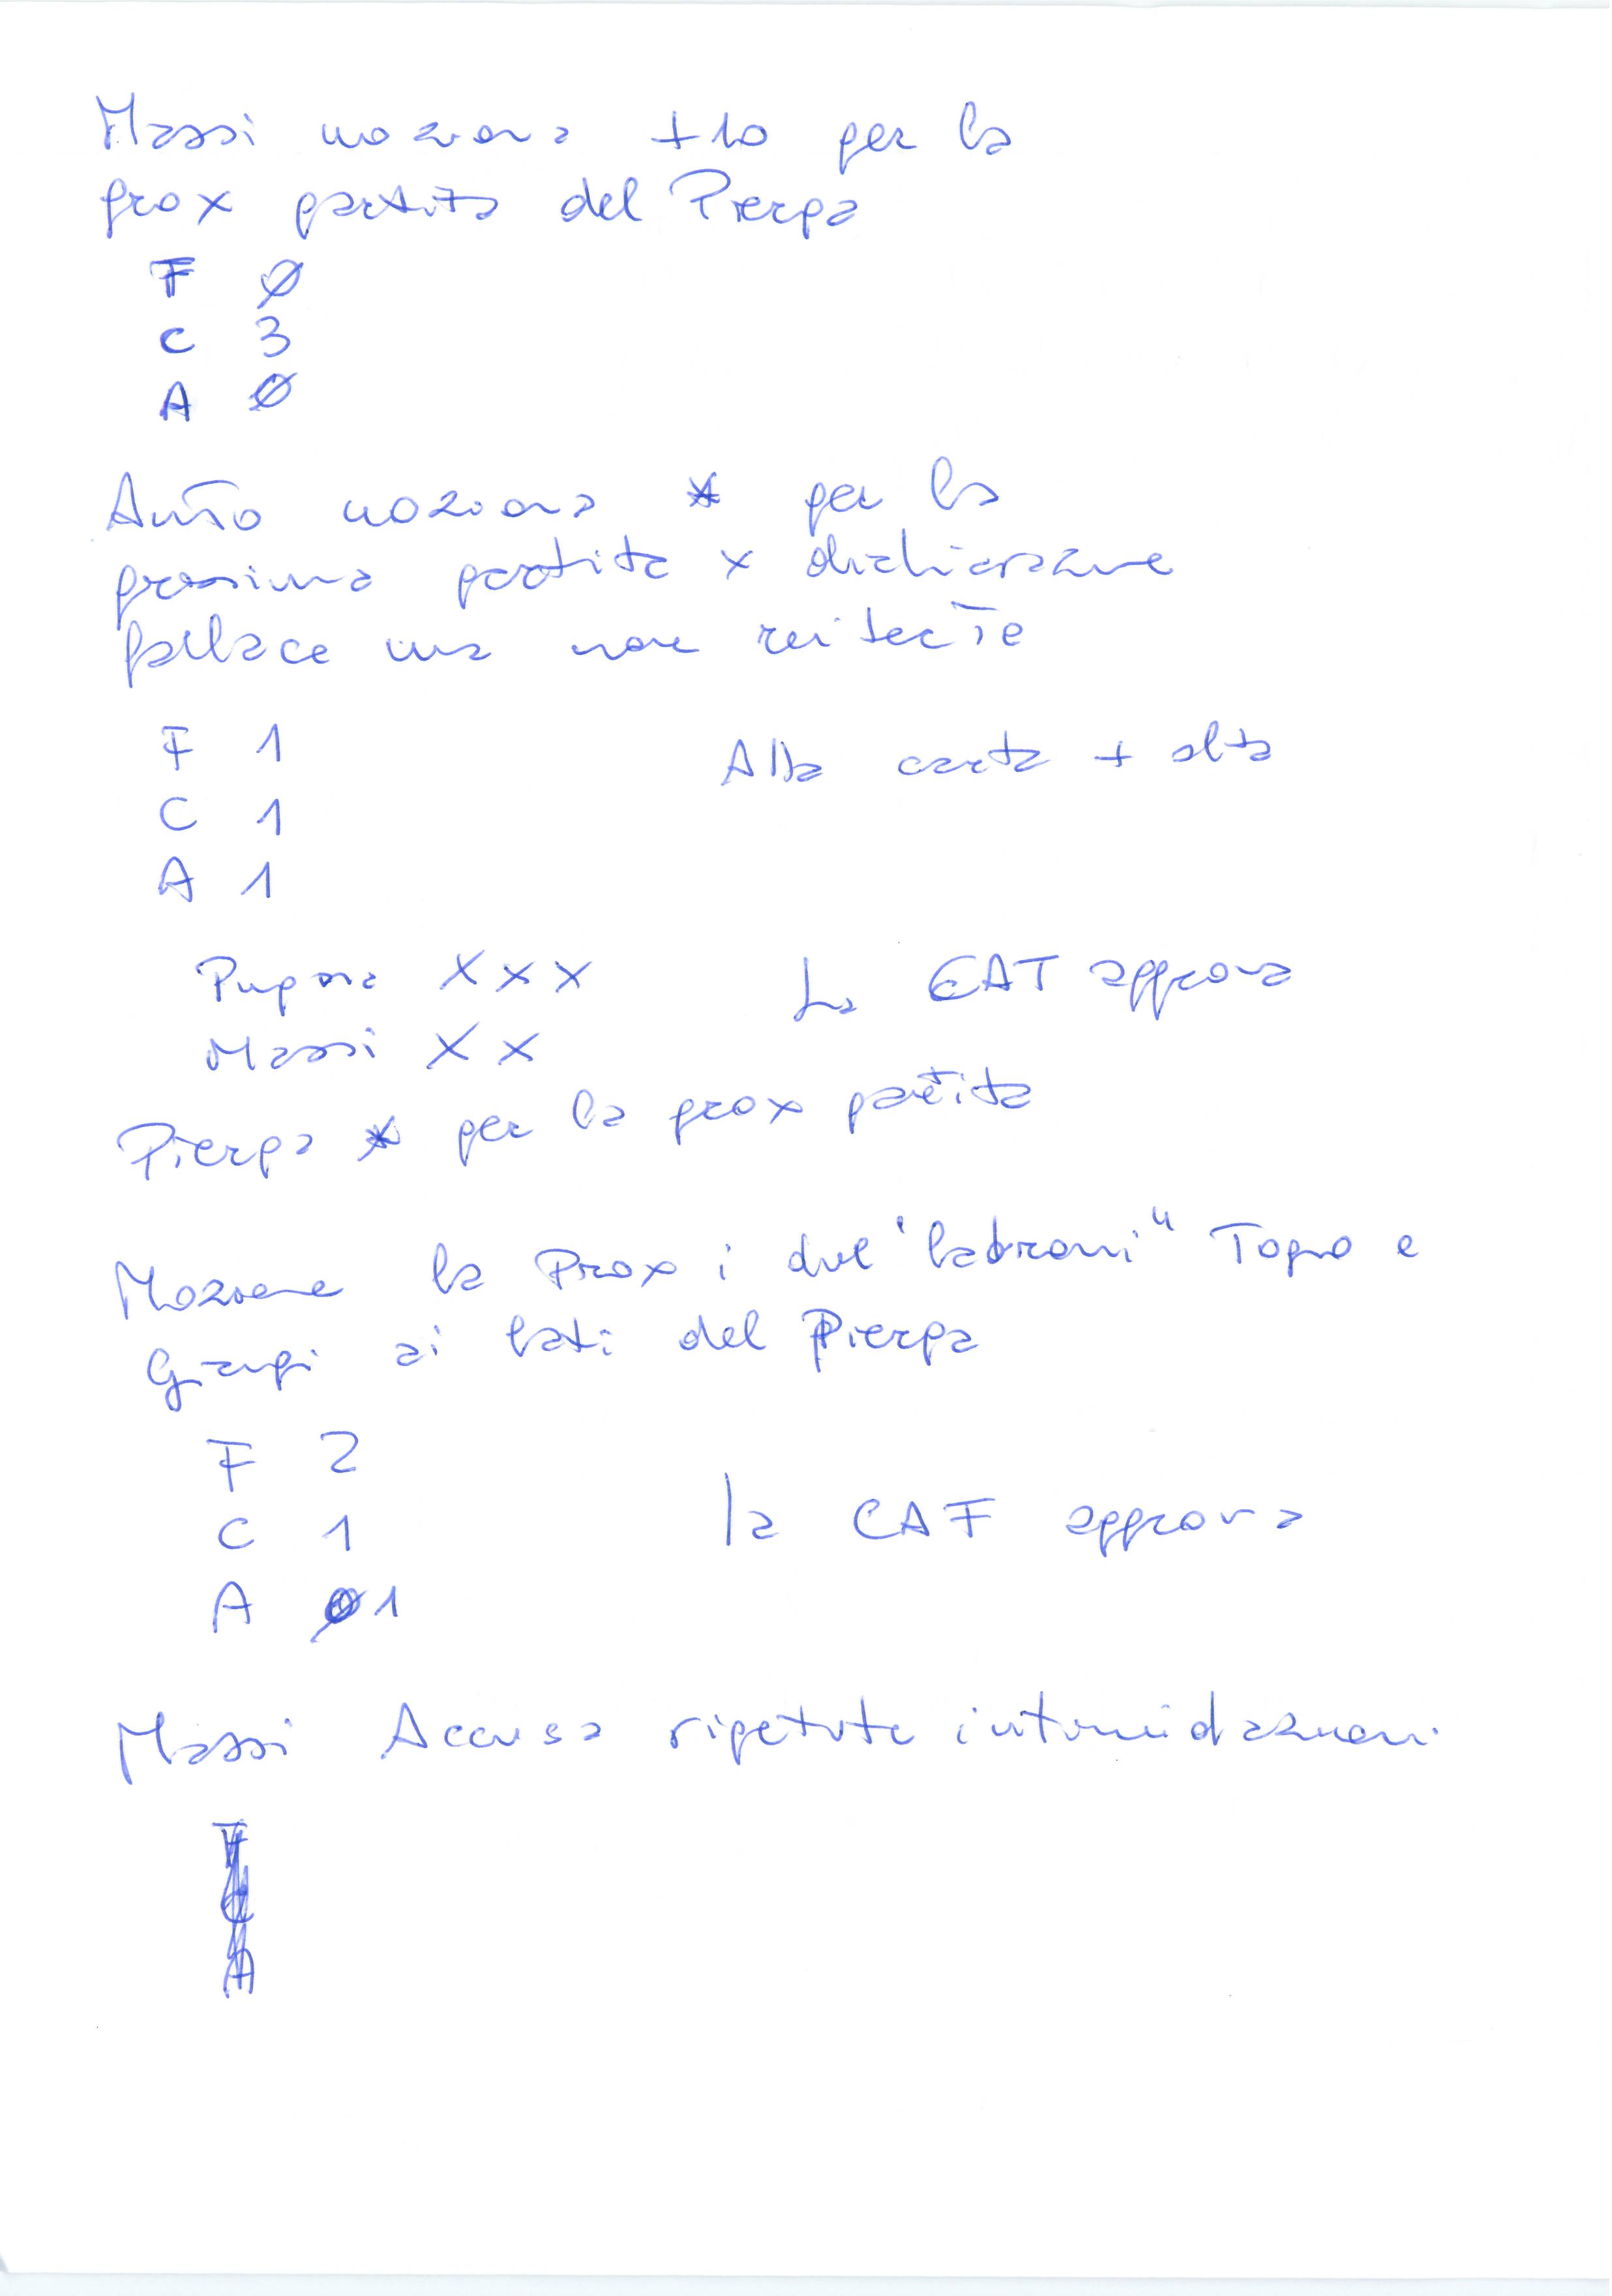 Massi moziona +10 per la
prox partita del Pierpa
F Ø
C 3
A Ø
moziona * per la
prossima partita x dichiarazione
fallace ma non reiterate
F 1 Alla carta + alta
C 1
A 1
XXX La CAF approva
Massi XX
Pierpa * per la prox partita
Mozione la Prox i due "ladroni" Topno e
Giangi ai lati del Pierpa
F 2
C 1 la CAF approva
A 1
Massi Accusa ripetute intimidazioni
F
C
A